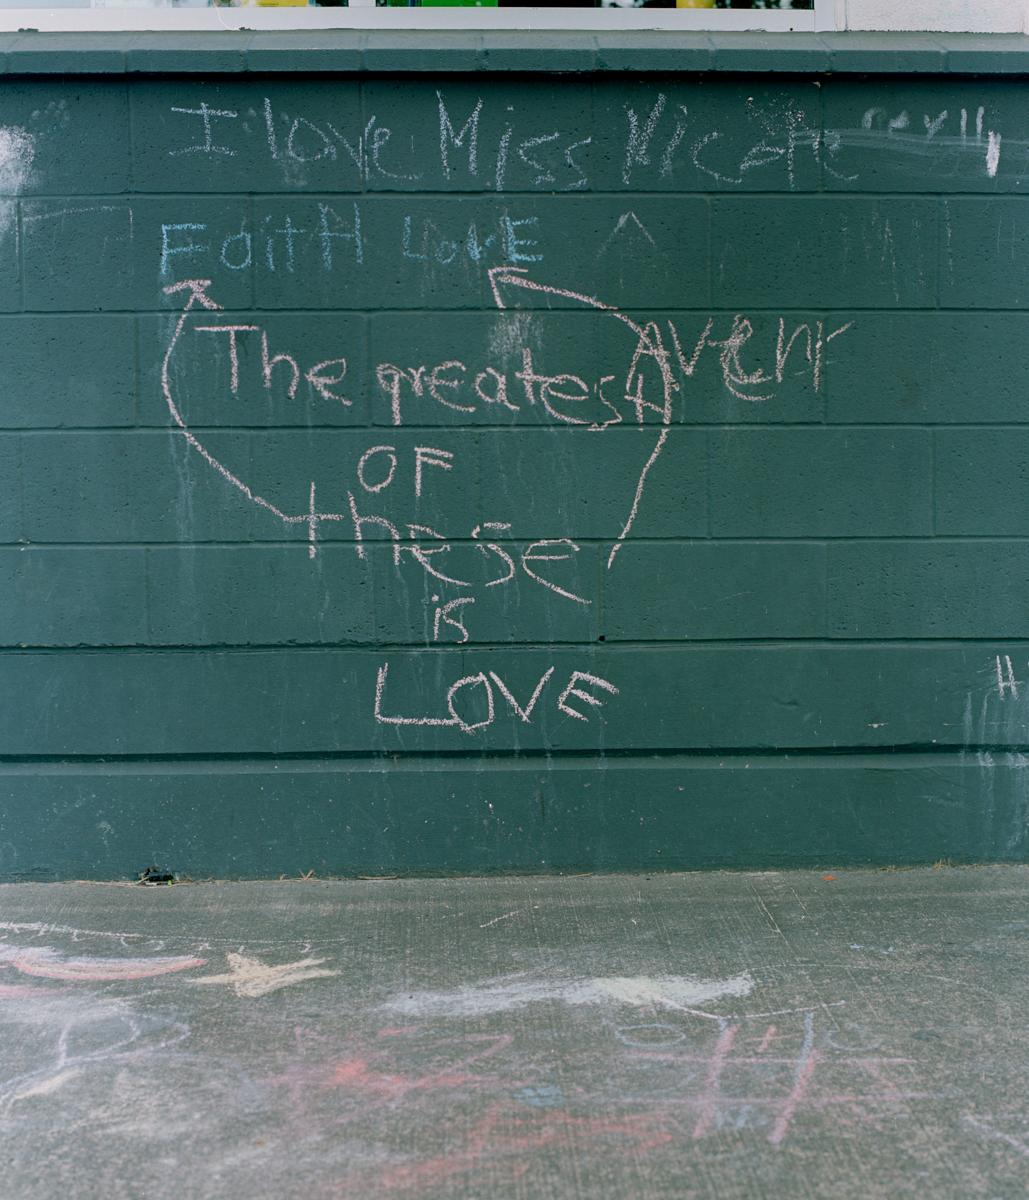 I love Miss Nicole
Faith LovE
The greatest Aven
OF
these
is
LOVE